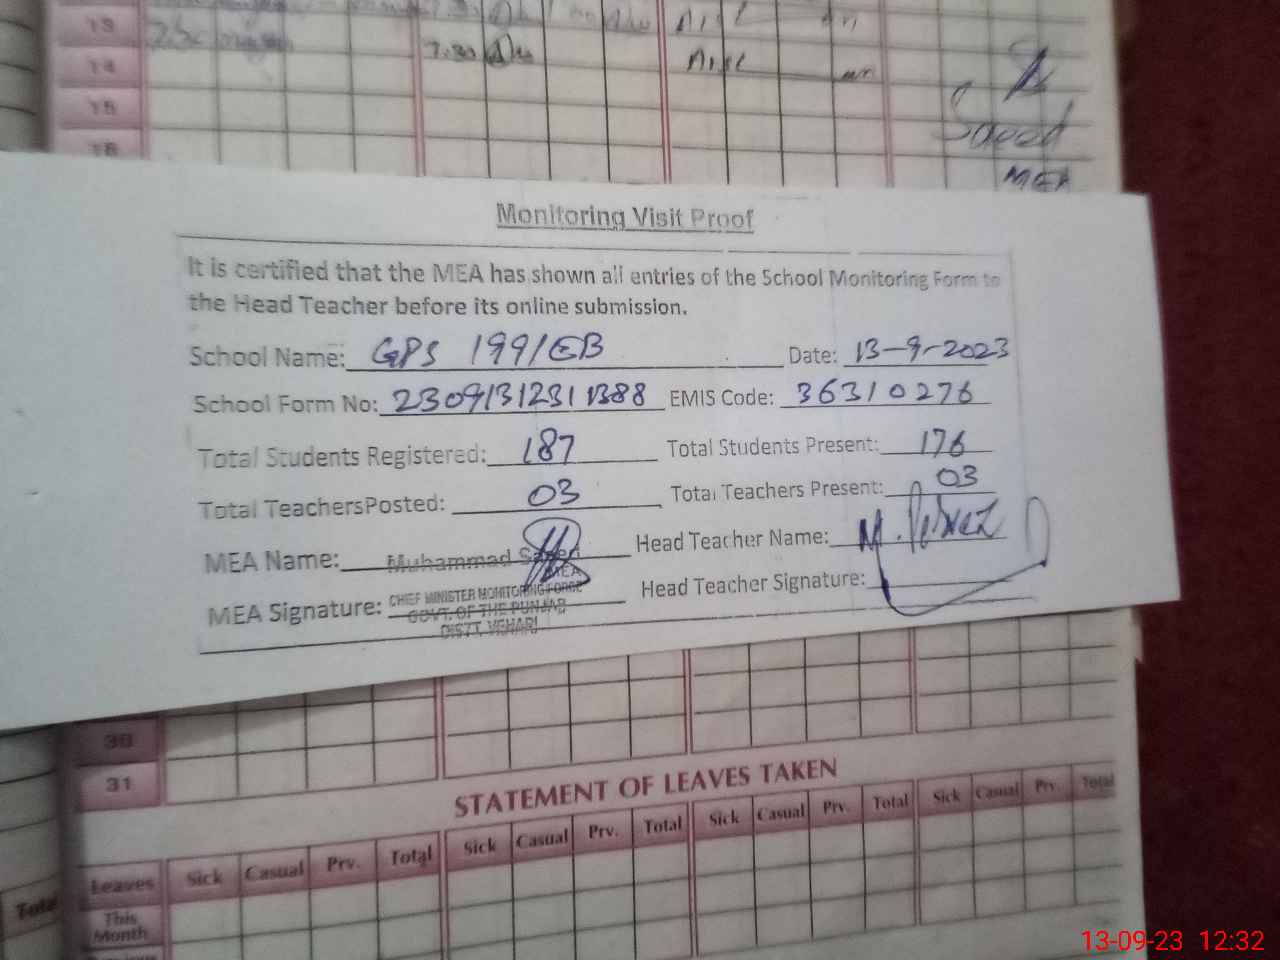 13
14 7.30 A11C
15
16
Saeed
MEA
Monitoring Visit Proof
It is certified that the MEA has shown all entries of the School Monitoring Form to
the Head Teacher before its online submission.
School Name: GPS 199/EB Date: 13-9-2023
School Form No: 23091312311388 EMIS Code: 36310276
Total Students Registered: 187 Total Students Present: 176
Total TeachersPosted: 03 Total Teachers Present: 03
MEA Name: Muhammad Saeed Head Teacher Name: M. Pervaz
MEA
MEA Signature: CHIEF MINISTER MONITORING FORCE Head Teacher Signature:
GOVT. OF THE PUNJAB
DISTT. VEHARI
30
31
STATEMENT OF LEAVES TAKEN
Leaves Sick Casual Prv. Total Sick Casual Prv. Total Sick Casual Prv. Total Sick Casual Prv. Total
Total This
Month
13-09-23 12:32